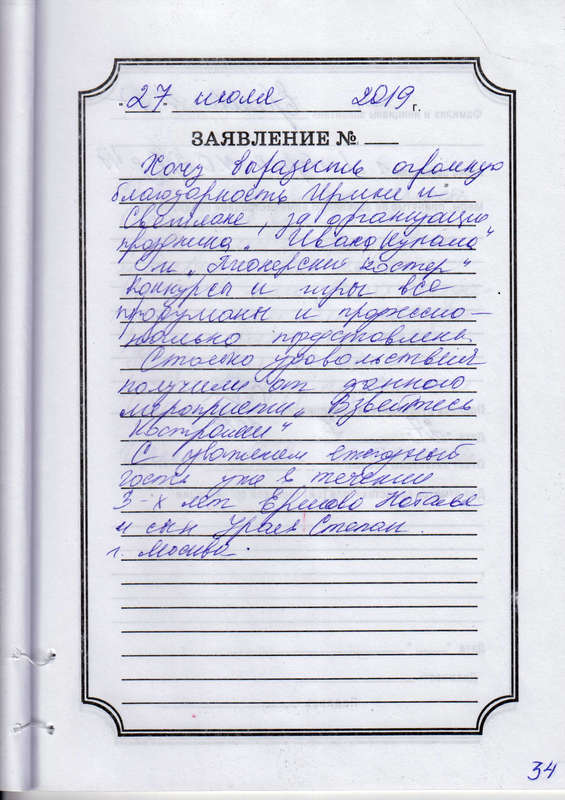 27 июля 2019 г.
ЗАЯВЛЕНИЕ №
Хочу выразить огромную
благодарность Ирине и
Светлане, за организацию
праздника „Ивана Купала"
и „Пионерский костер"
Конкурсы и игры все
продуманы и профессио-
нально подготовлены.
Столько удовольствия
получили от данного
мероприятия „Взвейтесь
кострами"
С уважением ежегодный
гость уже в течении
3-х лет Ершова Наталья
и сын Ураев Степан.
г. Москва.
34